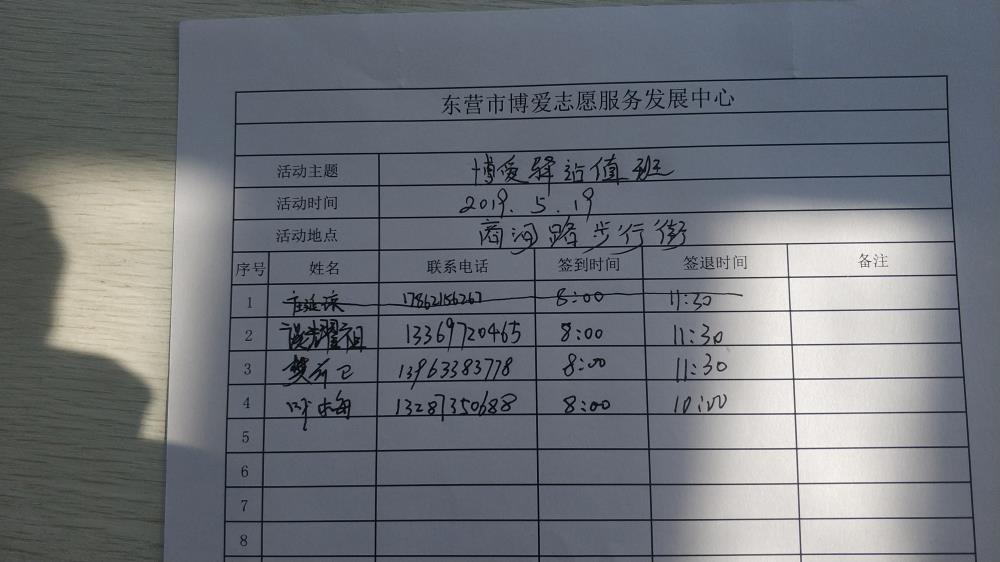 东营市博爱志愿服务发展中心
活动主题 博爱驿站值班
活动时间 2019.5.19
活动地点 商河路步行街
序号 姓名 联系电话 签到时间 签退时间 备注
1 17862156267 8:00 11:30
2 13369720465 8:00 11:30
3 13963383778 8:00 11:30
4 叶梅 13287350688 8:00 10:00
5
6
7
8